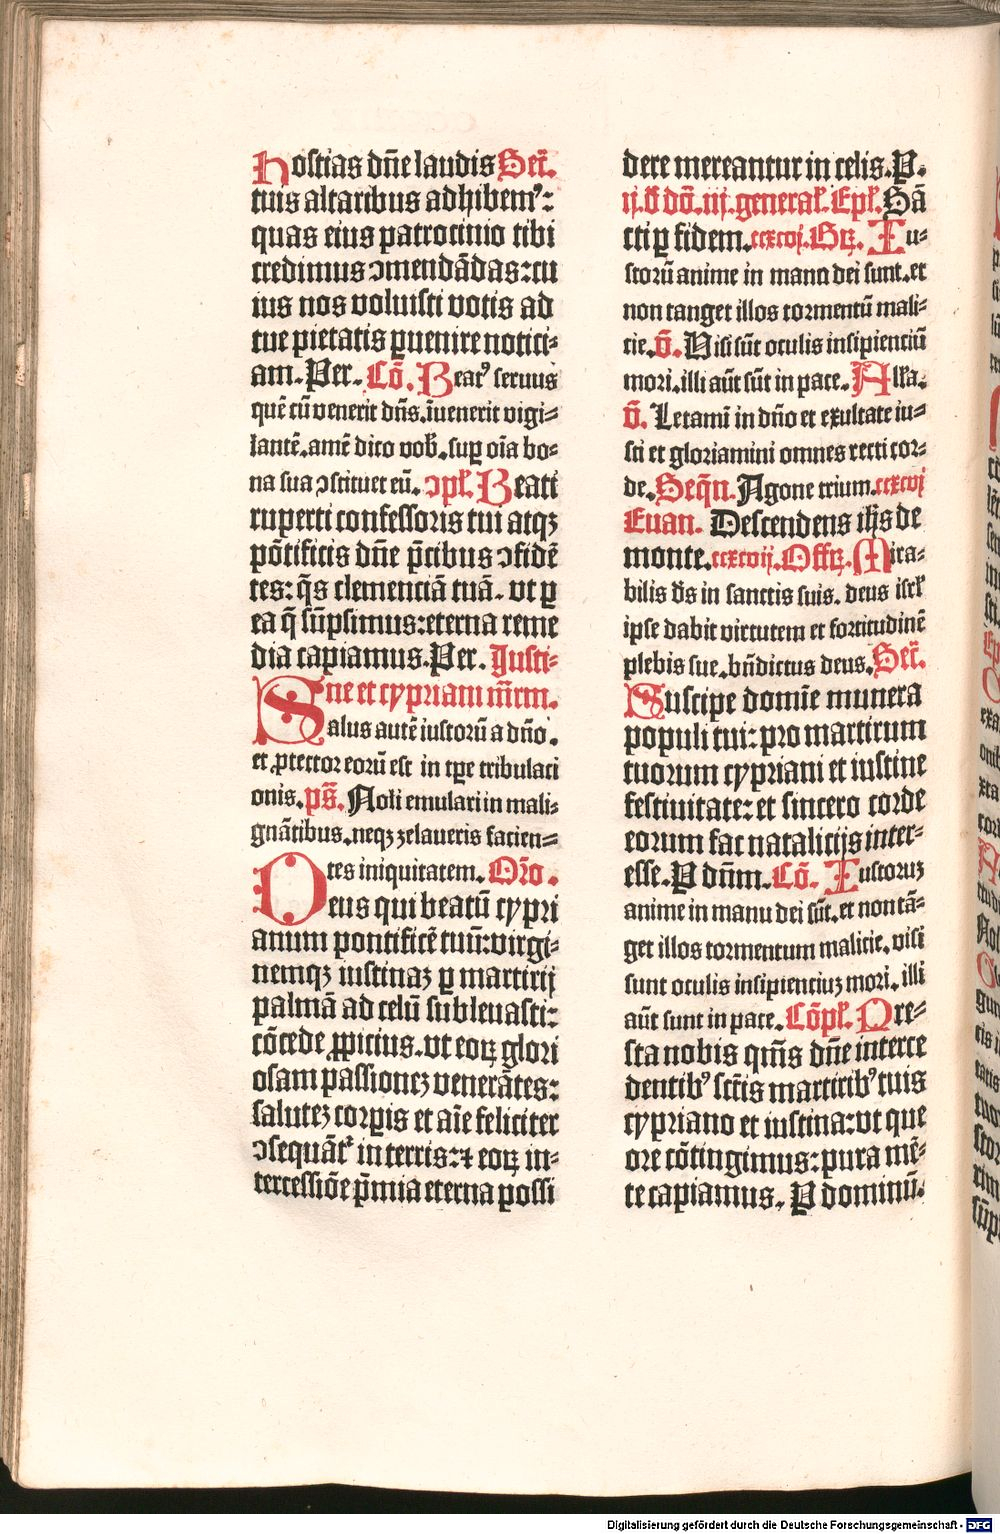 Hostias dn̄e laudis Secr̄.
tuis altaribus adhibem⁹:
quas eius patrocinio tibi
credimus ↄmendādas: cu
ius nos voluisti votis ad
tue pietatis ꝑuenire notici⸗
am. Per. Cō. Beat⁹ seruus
quē cū venerit dn̄s. īuenerit vigi⸗
lantē. amē dico vob̄. suꝑ oīa bo⸗
na sua ↄstituet eū. ↄpl̄. Beati
ruperti confessoris tui atqꝫ
pōtificis dn̄e p̄cibus ↄfidē
tes: q̄s clemenciā tuā. vt ꝑ
ea q̄ sūpsimus: eterna reme
dia capiamus. Per. Justi⸗
ne et cypriani mr̄m.
Salus autē iustorū a dn̄o.
et ꝓtector eorū est in tꝑe tribulaci
onis. ps̄. Noli emulari in mali⸗
gnātibus. neqꝫ zelaueris facien⸗
tes iniquitatem. Or̄o.
Deus qui beatū cypri
anum pontificē tuū: virgi⸗
nemqꝫ iustinaꝫ ꝑ martirij
palmā ad celū subleuasti:
cōcede ꝓpicius. vt eoꝝ glori
osam passioneꝫ venerātes:
saluteꝫ corꝑis et aīe feliciter
ↄsequāt᷑ in terris: ⁊ eoꝝ in⸗
tercessiōe p̄mia eterna possi
dere mereantur in celis. P.
ij. d̄ dō. iij. general̄. Epl̄. Sā
cti ꝑ fidem. ccxcvj. Gꝝ. Iu⸗
storū anime in manu dei sunt. et
non tanget illos tormentū mali⸗
cie. v̄. Visi sūt oculis insipienciū
mori. illi aūt sūt in pace. Alla.
v̄. Letamī in dn̄o et exultate iu⸗
sti et gloriamini omnes recti cor⸗
de. Seqn̄. Agone trium. ccxcvj
Euan. Descendens ih̄s de
monte. ccxcvij. Offꝝ. Mira⸗
bilis d̄s in sanctis suis. deus isrl̄
ipse dabit virtutem et fortitudinē
plebis sue. bn̄dictus deus. Secr̄.
Suscipe domīe munera
populi tui: pro martirum
tuorum cypriani et iustine
festiuitate: et sincero corde
eorum fac natalicijs inter⸗
esse. P dn̄m. Cō. Iustoruꝫ
anime in manu dei sūt. et non tā⸗
get illos tormentum malicie. visi
sunt oculis insipienciuꝫ mori. illi
aūt sunt in pace. Cōpl̄. Pre⸗
sta nobis qm̄s dn̄e interce
dentib⁹ sctīs martirib⁹ tuis
cypriano et iustina: vt que
ore cōtingimus: pura mē⸗
te capiamus. P dominū.
Digitalisierung gefördert durch die Deutsche Forschungsgemeinschaft - DFG